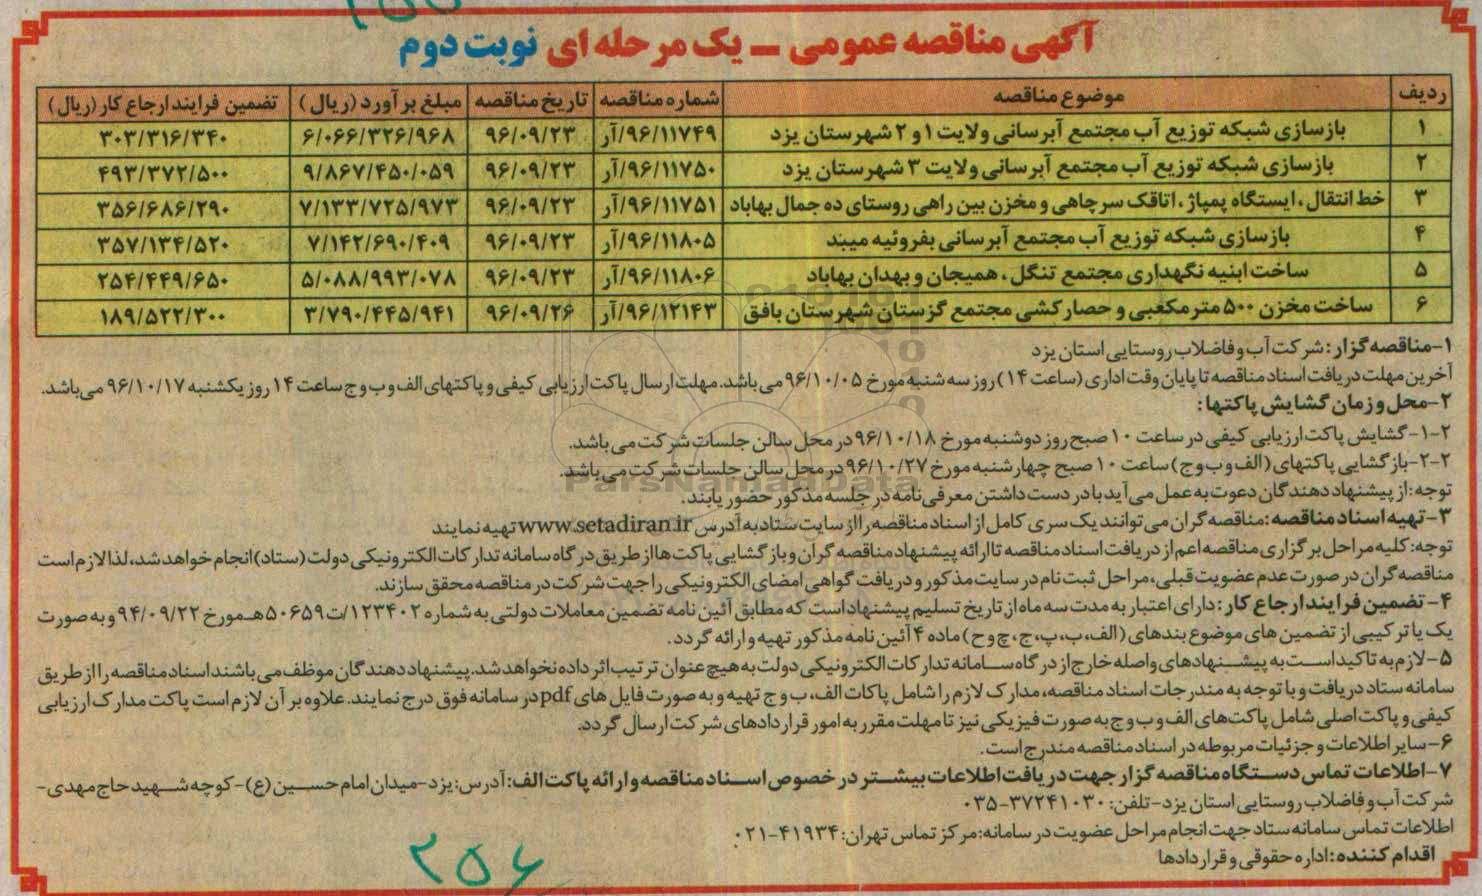 آگهی مناقصه عمومی – یک مرحله ای نوبت دوم
ردیف موضوع مناقصه شماره مناقصه تاریخ مناقصه مبلغ برآورد (ریال) تضمین فرایند ارجاع کار (ریال)
۱ بازسازی شبکه توزیع آب مجتمع آبرسانی ولایت ۱ و ۲ شهرستان یزد ۹۶/۱۱۷۴۹/آر ۹۶/۰۹/۲۳ ۶/۰۶۶/۳۲۶/۹۶۸ ۳۰۳/۳۱۶/۳۴۰
۲ بازسازی شبکه توزیع آب مجتمع آبرسانی ولایت ۳ شهرستان یزد ۹۶/۱۱۷۵۰/آر ۹۶/۰۹/۲۳ ۹/۸۶۷/۴۵۰/۰۵۹ ۴۹۳/۳۷۲/۵۰۰
۳ خط انتقال، ایستگاه پمپاژ، اتاقک سرچاهی و مخزن بین راهی روستای ده جمال بهاباد ۹۶/۱۱۷۵۱/آر ۹۶/۰۹/۲۳ ۷/۱۳۳/۷۲۵/۹۷۳ ۳۵۶/۶۸۶/۲۹۰
۴ بازسازی شبکه توزیع آب مجتمع آبرسانی بفروئیه میبند ۹۶/۱۱۸۰۵/آر ۹۶/۰۹/۲۳ ۷/۱۴۲/۶۹۰/۴۰۹ ۳۵۷/۱۳۴/۵۲۰
۵ ساخت ابنیه نگهداری مجتمع تنگل، همیجان و بهدان بهاباد ۹۶/۱۱۸۰۶/آر ۹۶/۰۹/۲۳ ۵/۰۸۸/۹۹۳/۰۷۸ ۲۵۴/۴۴۹/۶۵۰
۶ ساخت مخزن ۵۰۰ مترمکعبی و حصارکشی مجتمع گزستان شهرستان بافق ۹۶/۱۲۱۴۳/آر ۹۶/۰۹/۲۶ ۳/۷۹۰/۴۴۵/۹۴۱ ۱۸۹/۵۲۲/۳۰۰
۱-مناقصه گزار: شرکت آب و فاضلاب روستایی استان یزد
آخرین مهلت دریافت اسناد مناقصه تا پایان وقت اداری (ساعت ۱۴) روز سه شنبه مورخ ۹۶/۱۰/۰۵ می باشد. مهلت ارسال پاکت ارزیابی کیفی و پاکتهای الف و ب و ج ساعت ۱۴ روز یکشنبه ۹۶/۱۰/۱۷ می باشد.
۲-محل و زمان گشایش پاکتها:
۱-۲- گشایش پاکت ارزیابی کیفی در ساعت ۱۰ صبح روز دوشنبه مورخ ۹۶/۱۰/۱۸ در محل سالن جلسات شرکت می باشد.
۲-۲-بازگشایی پاکتهای (الف و ب و ج) ساعت ۱۰ صبح چهارشنبه مورخ ۹۶/۱۰/۲۷ در محل سالن جلسات شرکت می باشد.
توجه: از پیشنهاد دهندگان دعوت به عمل می آید با در دست داشتن معرفی نامه در جلسه مذکور حضور یابند.
۳-تهیه اسناد مناقصه: مناقصه گران می توانند یک سری کامل از اسناد مناقصه را از سایت ستاد به آدرس www.setadiran.ir تهیه نمایند
توجه: کلیه مراحل برگزاری مناقصه اعم از دریافت اسناد مناقصه تا ارائه پیشنهاد مناقصه گران و بازگشایی پاکت ها از طریق درگاه سامانه تدارکات الکترونیکی دولت (ستاد) انجام خواهد شد، لذا لازم است
مناقصه گران در صورت عدم عضویت قبلی، مراحل ثبت نام در سایت مذکور و دریافت گواهی امضای الکترونیکی را جهت شرکت در مناقصه محقق سازند.
۴- تضمین فرایند ارجاع کار: دارای اعتبار به مدت سه ماه از تاریخ تسلیم پیشنهاد است که مطابق آئین نامه تضمین معاملات دولتی به شماره ۱۲۳۴۰۲/ت۵۰۶۵۹هـ مورخ ۹۴/۰۹/۲۲ و به صورت
یک یا ترکیبی از تضمین های موضوع بندهای (الف، ب، پ، ج، چ و ح) ماده ۴ آئین نامه مذکور تهیه و ارائه گردد.
۵-لازم به تاکید است به پیشنهادهای واصله خارج از درگاه سامانه تدارکات الکترونیکی دولت به هیچ عنوان ترتیب اثر داده نخواهد شد. پیشنهاد دهندگان موظف می باشند اسناد مناقصه را از طریق
سامانه ستاد دریافت و با توجه به مندرجات اسناد مناقصه، مدارک لازم را شامل پاکات الف، ب و ج تهیه و به صورت فایل های pdf در سامانه فوق درج نمایند. علاوه بر آن لازم است پاکت مدارک ارزیابی
کیفی و پاکت اصلی شامل پاکت های الف و ب و ج به صورت فیزیکی نیز تا مهلت مقرر به امور قراردادهای شرکت ارسال گردد.
۶-سایر اطلاعات و جزئیات مربوطه در اسناد مناقصه مندرج است.
۷-اطلاعات تماس دستگاه مناقصه گزار جهت دریافت اطلاعات بیشتر در خصوص اسناد مناقصه و ارائه پاکت الف: آدرس: یزد-میدان امام حسین (ع)-کوچه شهید حاج مهدی-
شرکت آب و فاضلاب روستایی استان یزد-تلفن: ۳۷۲۴۱۰۳۰-۰۳۵
اطلاعات تماس سامانه ستاد جهت انجام مراحل عضویت در سامانه: مرکز تماس تهران: ۴۱۹۳۴-۰۲۱
اقدام کننده: اداره حقوقی و قراردادها
ParsNamadData
۲۵۶